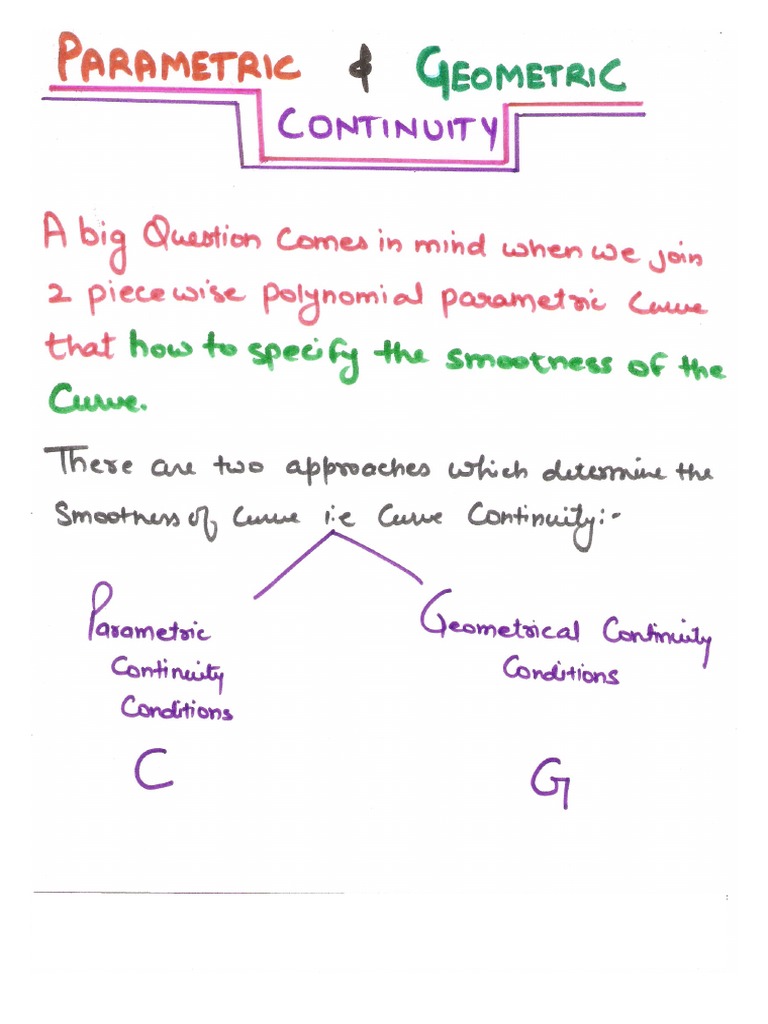 PARAMETRIC & GEOMETRIC
CONTINUITY
A big Question Comes in mind when we join
2 piecewise polynomial parametric Curve
that how to specify the smootness of the
Curve.
There are two approaches which determine the
Smootness of Curve i.e Curve Continuity:-
Parametric
Continuity
Conditions
C
Geometrical Continuity
Conditions
G